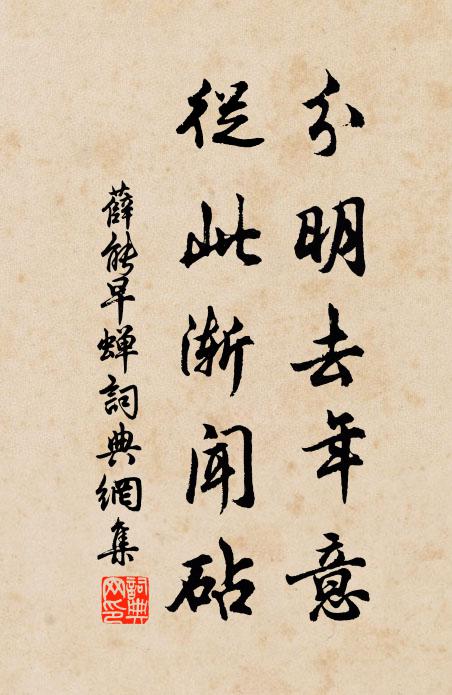 分明去年意
從此漸聞砧
薛能早蟬詞典網集
詞典網印